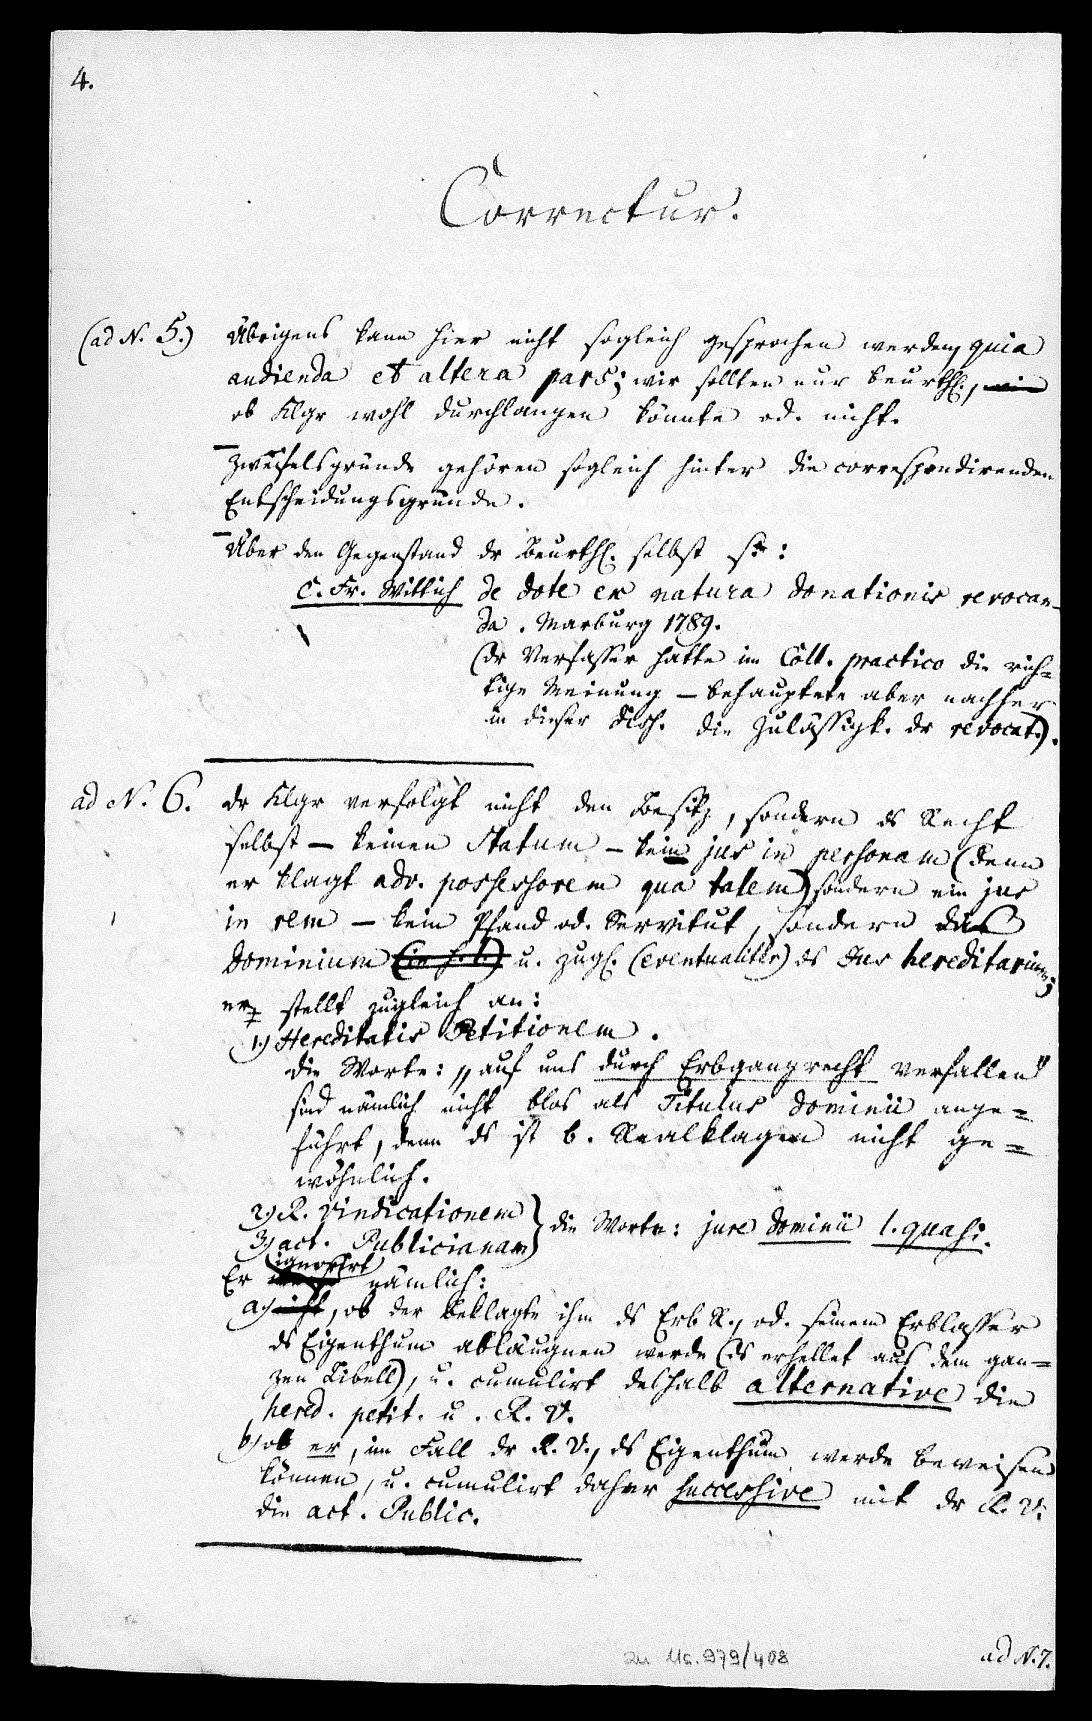 4.
Correctur.
(ad N. 5.) Übrigens kann hier nicht sogleich gesprochen werden, quia
audienda et altera pars; wir sollten nur beurthl., wie
ob Klgr wohl durchlangen könnte od. nicht.
Zweifelsgründe gehören sogleich hinter die correspondirenden
Entscheidungsgründe.
Über den Gegenstand dr Beurthl. selbst se:
C. Fr. Wittich de dote ex natura donationis revocan-
da. Marburg 1789.
(dr Verfasser hatte im Coll. practico die rich=
tige Meinung – behauptete aber nachher
in dieser Disch. die Zulässigk. dr revocat.).
ad N. 6. dr Klgr verfolgt nicht den Besitz, sondern ds Recht
selbst – keinen Statum – kein jus in personam (denn
er klagt adv. possessorem qua talem) sondern ein jus
in rem – kein Pfand od. Servitut, sondern das
Dominium (in h. l.) u. zugl. (eventualiter) ds Jus hereditarium;
er stellt zugleich an:
1.) Hereditatis Petitionem.
die Worte: „auf uns durch Erbgangrecht verfallen"
sind nämlich nicht blos als Titulus dominii ange=
führt, denn ds ist b. Realklagen nicht ge=
wöhnlich.
2.) R. Vindicationem
3.) act. Publicianam } die Worte: jure dominii l. quasi.
ignorirt
Er nämlich:
a.) nicht, ob der Beklagte ihm ds Erb R., od. seinem Erblasser
ds Eigenthum abläugnen werde (ds erhellet aus dem gan=
zen Libell), u. cumulirt deshalb alternative die
hered. petit. u. R. V.
b.) ob er, im Fall dr R. V., ds Eigenthum werde beweisen
können, u. cumulirt daher successive mit dr R. V.
die act. Public.
zu Ms. 979/408
ad N. 7.